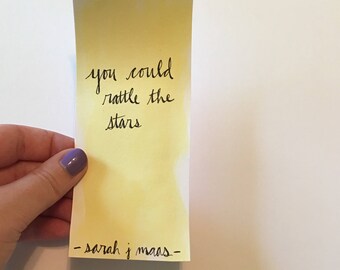 you could
rattle the
stars
- sarah j maas -